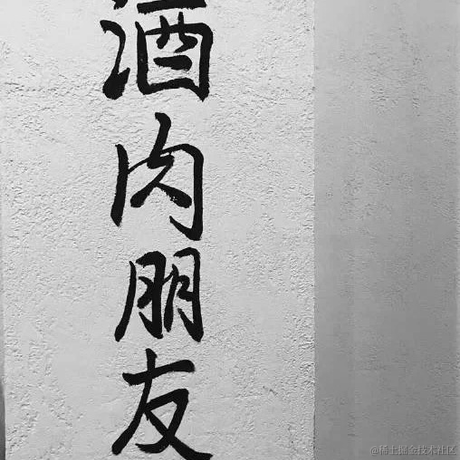 酒肉朋友
@稀土掘金技术社区